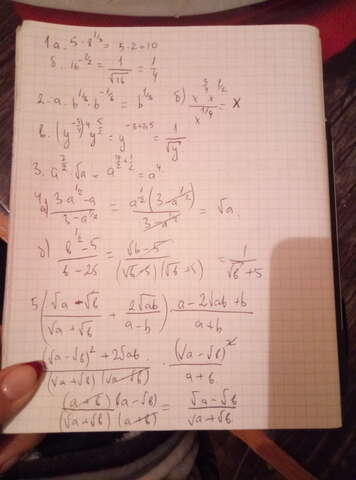 1.a. 5·8^{1/3} = 5·2=10
б. 16^{-1/2} = \frac{1}{\sqrt{16}} = \frac{1}{4}
2.a. b^{1/3}·b^{-1/3} = b^{1/3} б) \frac{x^{3/4} x^{1/2}}{x^{1/4}} = x
в. (y^{-3/4})^4 y^{5/2} = y^{-3+2,5} = \frac{1}{\sqrt{y}}
3. a^{7/2}·√a = a^{7/2+1/2} = a^4
4.a) \frac{3a^{1/2}-a}{3-a^{1/2}} = \frac{a^{1/2}(3-a^{1/2})}{3-a^{1/2}} = √a.
б) \frac{b^{1/2}-5}{b-25} = \frac{√b-5}{(√b-5)(√b+5)} = \frac{1}{√b+5}
5 (\frac{√a-√b}{√a+√b} + \frac{2√ab}{a-b})·\frac{a-2√ab+b}{a+b}
\frac{(√a-√b)^2+2√ab}{(√a+√b)(√a-√b)} · \frac{(√a-√b)^2}{a+b}
\frac{(a+b)(√a-√b)}{(√a+√b)(a+b)} = \frac{√a-√b}{√a+√b}